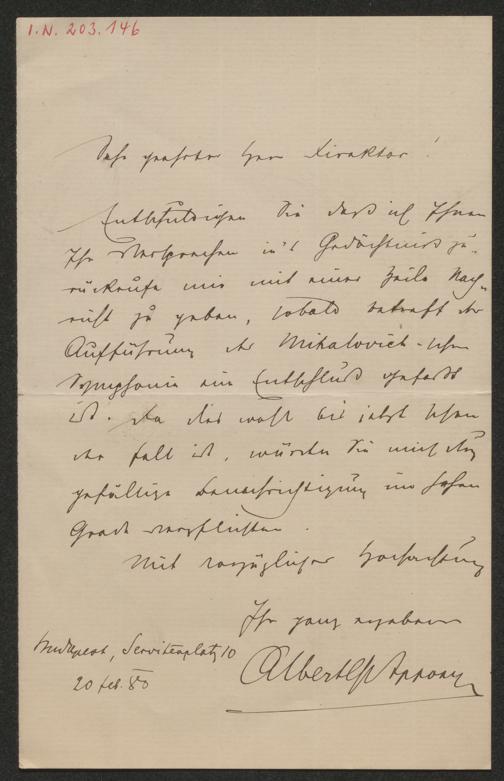 I.N. 203.146
Sehr geehrter Herr Direktor!
Entschuldigen Sie daß ich Ihnen
Ihr Versprechen in's Gedächtniß zu-
rückrufe mir mit einer Zeile Nach-
richt zu geben, sobald betreff der
Aufführung der Mihalovich-schen
Symphonie ein Entschluß gefaßt
ist. Da dies wohl bis jetzt schon
der Fall ist, würden Sie mich durch
gefällige Benachrichtigung im hohen
Grade verpflichten.
Mit vorzüglicher Hochachtung
Ihr ganz ergebener
Budapest, Servitenplatz 10
20 feb. 80
Albert Apponyi